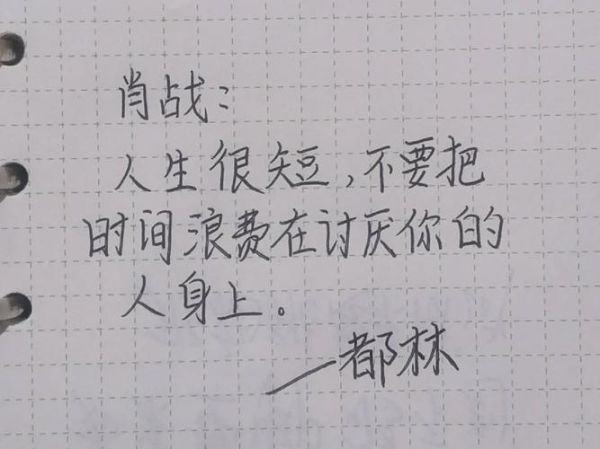 肖战：
人生很短，不要把
时间浪费在讨厌你的
人身上。
——都林